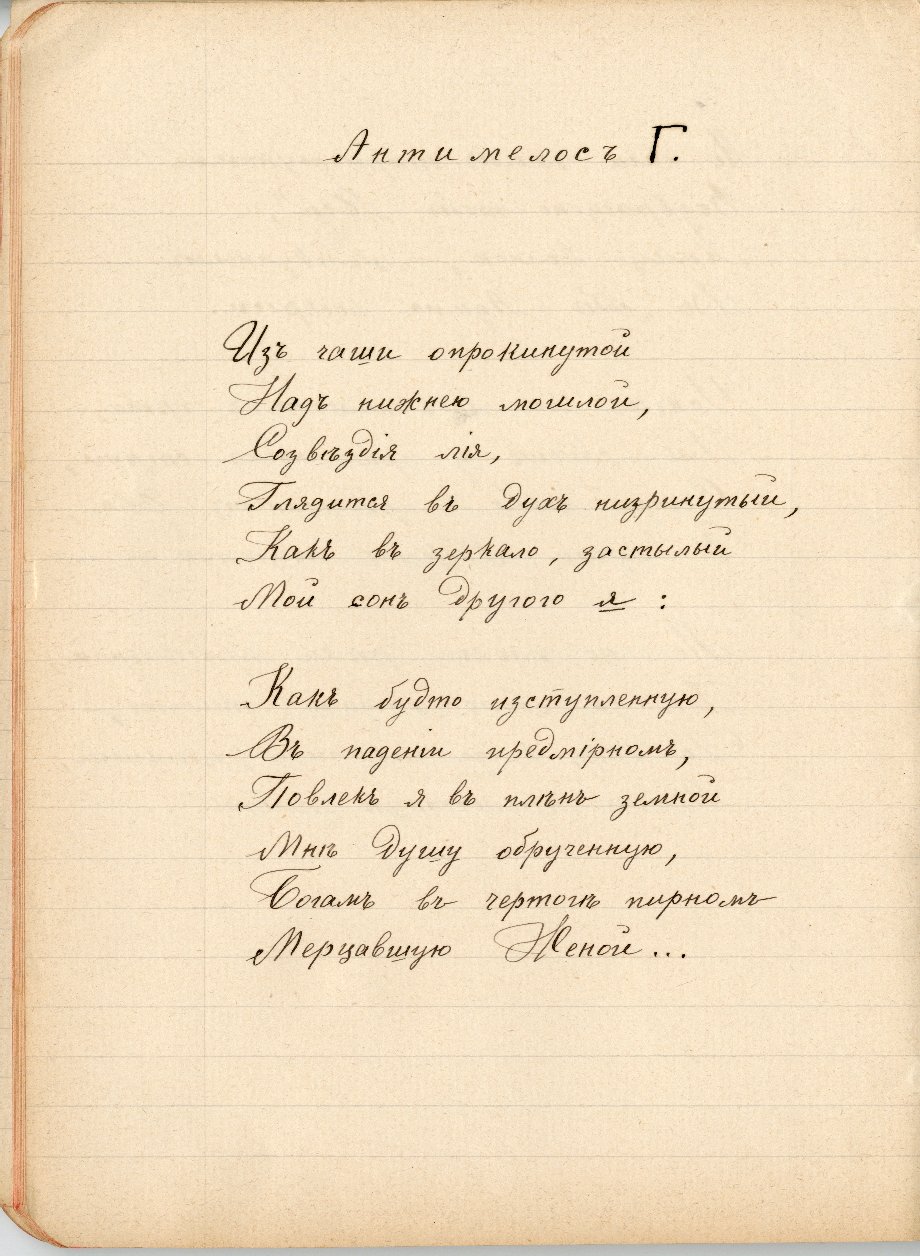 Антимелосъ Г.
Изъ чаши опрокинутой
Надъ нижнею могилой,
Созвѣздія лія,
Глядится въ духъ низринутый,
Какъ въ зеркало, застылый
Мой сонъ другого я :
Какъ будто изступленную,
Въ паденіи предмірномъ,
Повлекъ я въ плѣнъ земной
Мнѣ душу обрученную,
Богамъ въ чертогѣ пирномъ
Мерцавшую Женой...